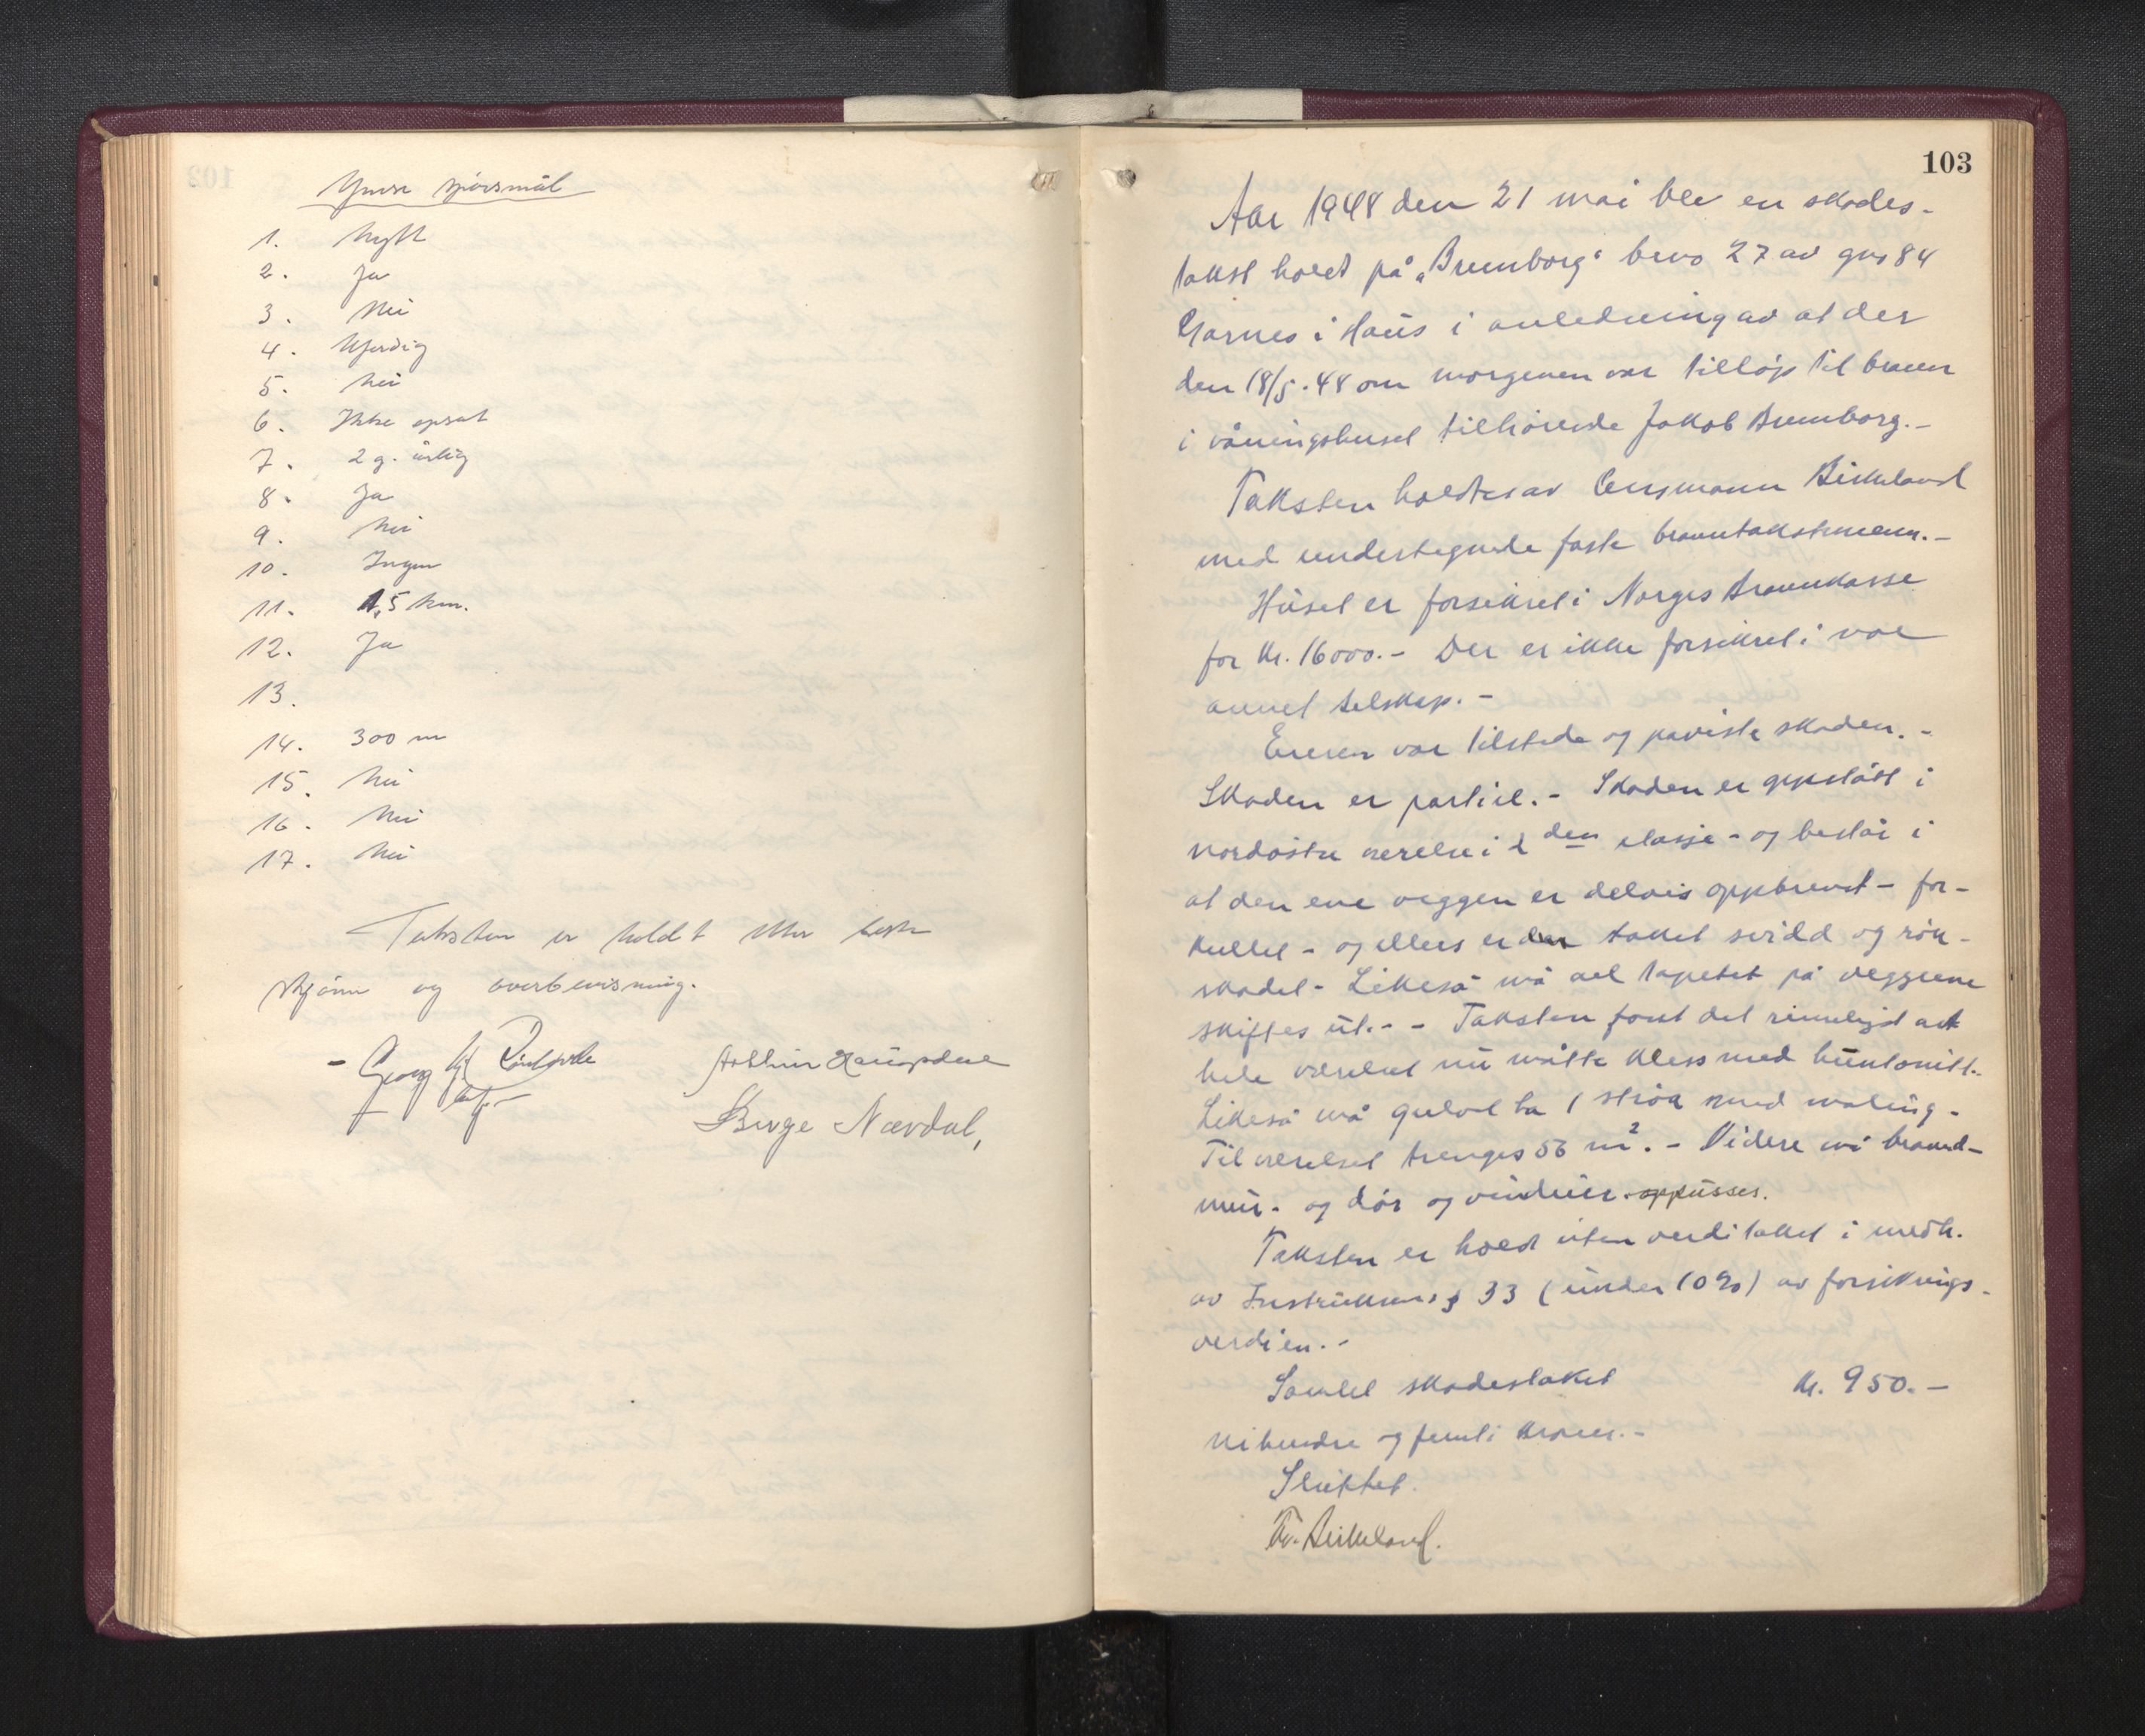 Ymse spørsmål
1. Nytt
2. Ja
3. Nei
4. Uferdig
5. Nei
6. Ikke opsat
7. 2 g. årlig
8. Ja
9. Nei
10. Ingen
11. 1,5 km.
12. Ja
13.
14. 300 m
15. Nei
16. Nei
17. Nei
Taksten er holdt etter beste
skjønn og overbevisning.
Georg
Birge Nævdal,
103
Aar 1948 den 21 mai blev en skades-
takst holdt på „Brumborg“ brno 27 av gno 84
Garnes i Haus i anledning av at der
den 18/5.48 om morgenen var tilløp til brann
i våningshuset tilhørende Jakob Brumborg.-
Taksten holdtes av lensmann Birkeland
med undertegnede faste branntakstmenn.-
Huset er forsikret i Norges Brannkasse
for kr. 16000.- Det er ikke forsikret i noe
annet selskap.-
Eieren var tilstede og paviste skaden.-
Skaden er partiel.- Skaden er oppstått i
nordøstre værelse i 2 den etasje - og består i
at den ene veggen er delvis oppbrent - for-
kullet - og ellers er der taket svidd og røk-
skadet - Likeså må all tapetet på veggene
skiftes ut.- - Taksten fant det rimeligst att
hele værelset nu måtte kles med huntonitt.-
Likeså må gulvet ha 1 strøk med maling -
Til værelset trenges 56 m². - Videre må brand-
mur - og dør og vinduer oppusses.
Taksten er holdt uten verditakst i medh.
av Instruksens § 33 (under 10%) av forsikrings-
verdien.-
Samlet skadestakst kr. 950.-
nihundre og femti kroner.-
Sluttet.
Birkeland.